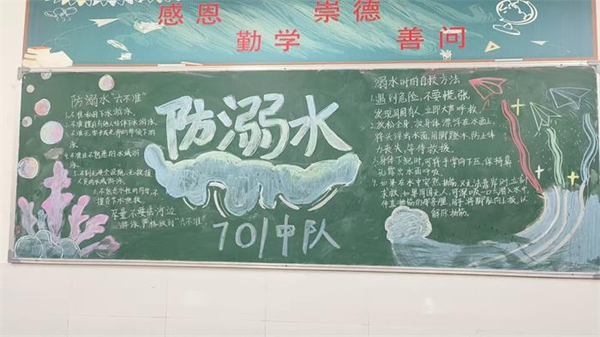 感恩 崇德
勤学 善问
防溺水“六不准”
1.不准私自下水游泳.
2.不准擅自与他人结伴游泳.
3.不准在无家长或老师的带领下游
泳.
4.不准到不熟悉的水域游
泳.
5.不到无安全设施、无救援
人员的水域游泳.
6.不熟悉水性的同学,不
擅自下水施救.
尽量不要去河边
游泳严格做到“六不准”
防溺水
701中队
溺水时的自救方法
1.遇到危险,不要慌张
发现周围有人,立即大声呼救.
2.放松全身,让身体漂浮在水面上,
将头浮出水面,用脚踢水,防止体
力丧失,等待救援.
3.身体下沉时,可将手掌向下压,保持鼻
露出水面呼吸.
4.如果在水中突然抽筋,又无法靠岸时,立即
求救,如果周围无人,可深吸一口气潜入水中,
伸直抽筋的那条腿,用手将脚趾向上扳,以
解除抽筋.